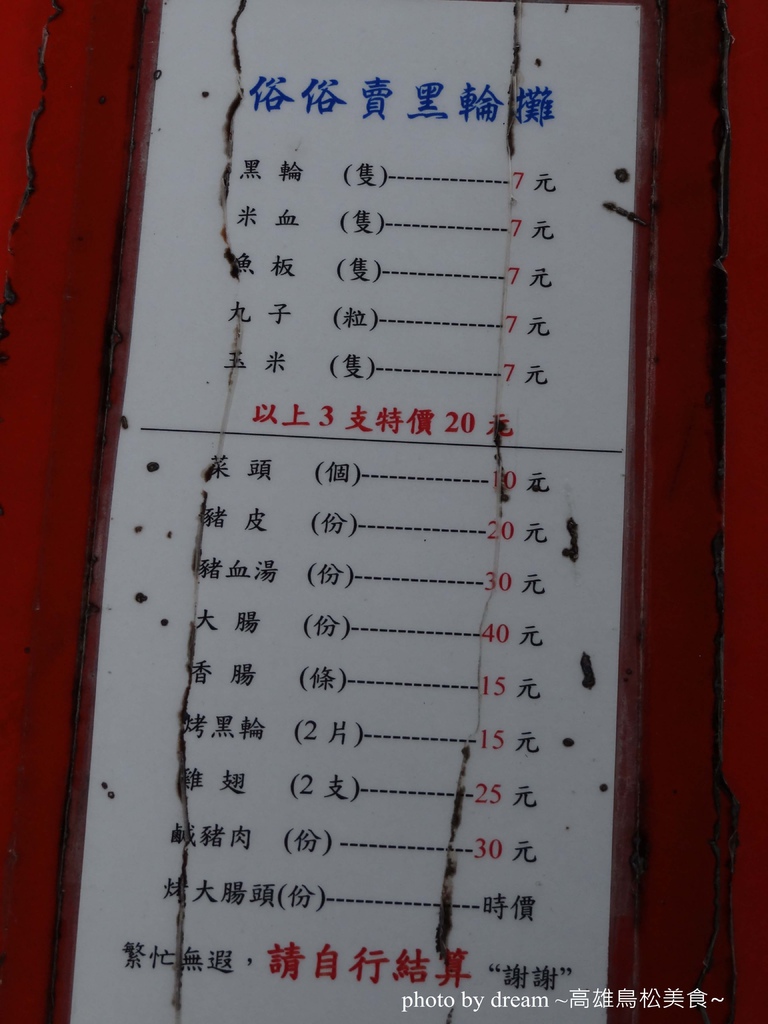 俗俗賣黑輪攤
黑輪 (隻)---------------7 元
米血 (隻)---------------7 元
魚板 (隻)---------------7 元
丸子 (粒)---------------7 元
玉米 (隻)---------------7 元
以上 3 支特價 20 元
菜頭 (個)----------------10 元
豬皮 (份)----------------20 元
豬血湯 (份)----------------30 元
大腸 (份)----------------40 元
香腸 (條)----------------15 元
烤黑輪 (2 片)--------------15 元
雞翅 (2 支)--------------25 元
鹹豬肉 (份) ----------------30 元
烤大腸頭(份)-------------------時價
繁忙無遐，請自行結算 “謝謝”
photo by dream ~高雄鳥松美食~